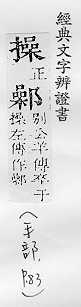 經典文字辨證書
操正
鄵別公羊傳卒于
操左傳作鄵
(手部,P83)